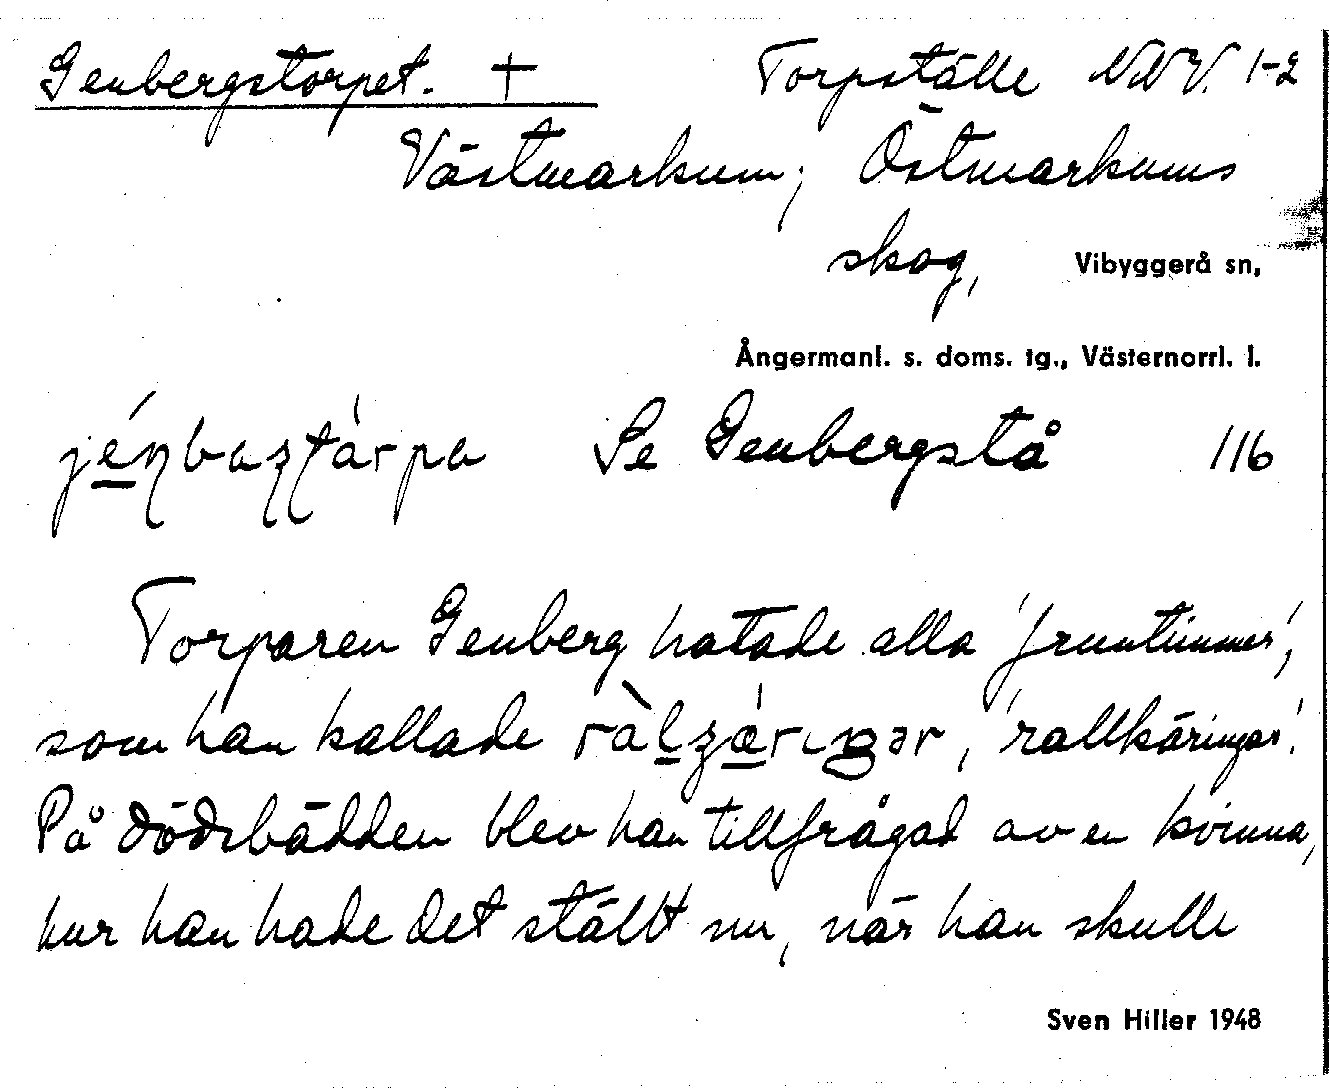 Genbergstorpet. † Torpställe NNV. 1-2
Västmarkum; Östmarkums
skog, Vibyggerå sn,
Ångermanl. s. doms. tg., Västernorrl. l.
Se Genbergstå 116
Torparen Genberg hatade alla 'fruntimmer',
som han kallade , 'rallkäringar'.
På dödsbädden blev han tillfrågad av en kvinna,
hur han hade det ställt nu, när han skulle
Sven Hiller 1948